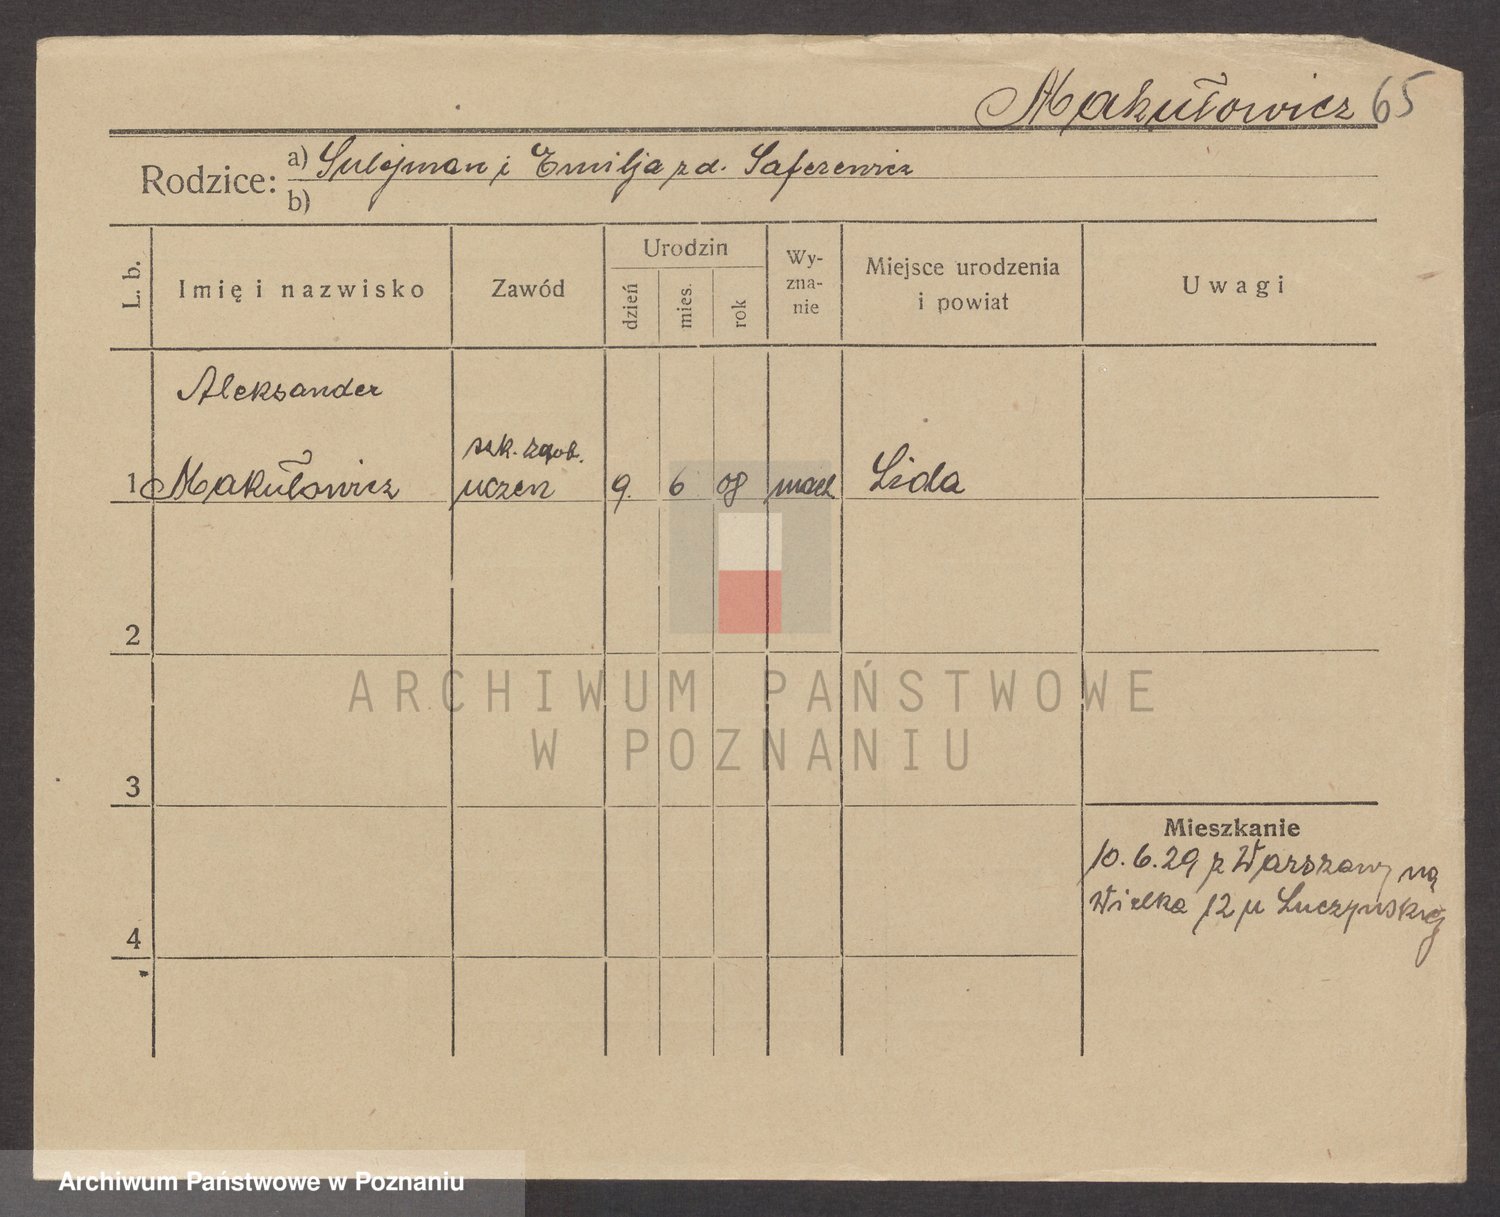 Makułowicz 65
Rodzice: a) Sulejman i Emilja z d. Safcewicz
b)
L. b.
Imię i nazwisko
Zawód
Urodzin
dzień
mies.
rok
Wy-
zna-
nie
Miejsce urodzenia
i powiat
Uwagi
Aleksander
szk.
1 Makułowicz uczeń 9. 6 08 Lida
2
ARCHIWUM PAŃSTWOWE
W POZNANIU
3
Mieszkanie
10.6.29 z Warszawy na
Wielka 12 u Łuczyńskiej
4
Archiwum Państwowe w Poznaniu